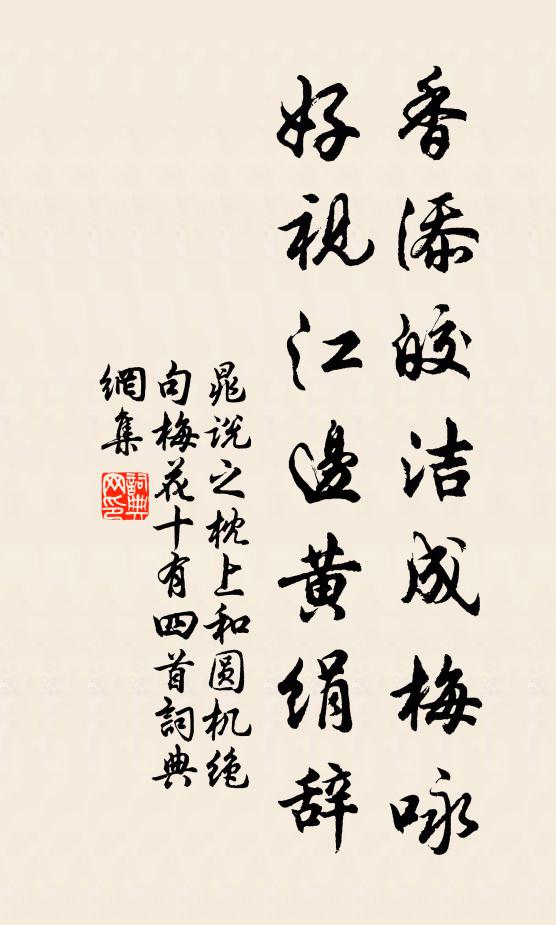 香添皎洁成梅咏
好视江邊黄绢辞
晁说之枕上和圆机绝
句梅花十有四首詞典
網集
詞典网印